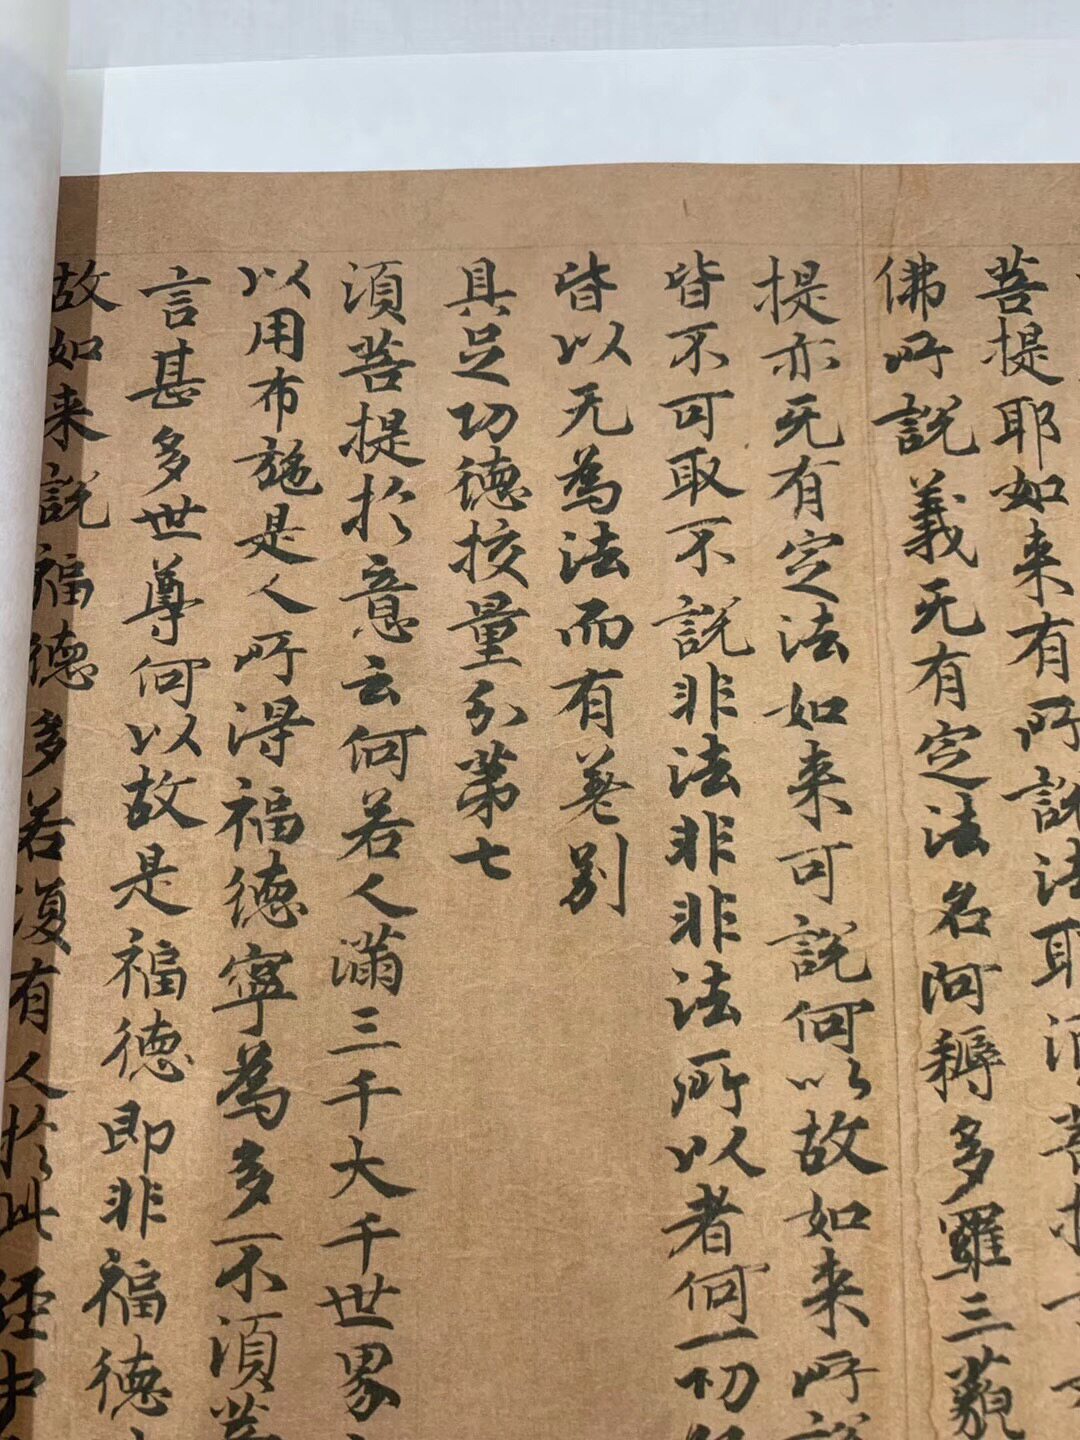 菩提耶如来有所説法耶須菩
佛所説義无有定法名阿耨多羅三藐
提亦无有定法如来可説何以故如来所説
皆不可取不説非法非非法所以者何一切
皆以无為法而有差别
具足功德挍量分第七
湏菩提扵意云何若人滿三千大千世界
以用布施是人所得福德寧為多不湏菩
言甚多世尊何以故是福德即非福德
故如来説福德多若復有人扵此經中